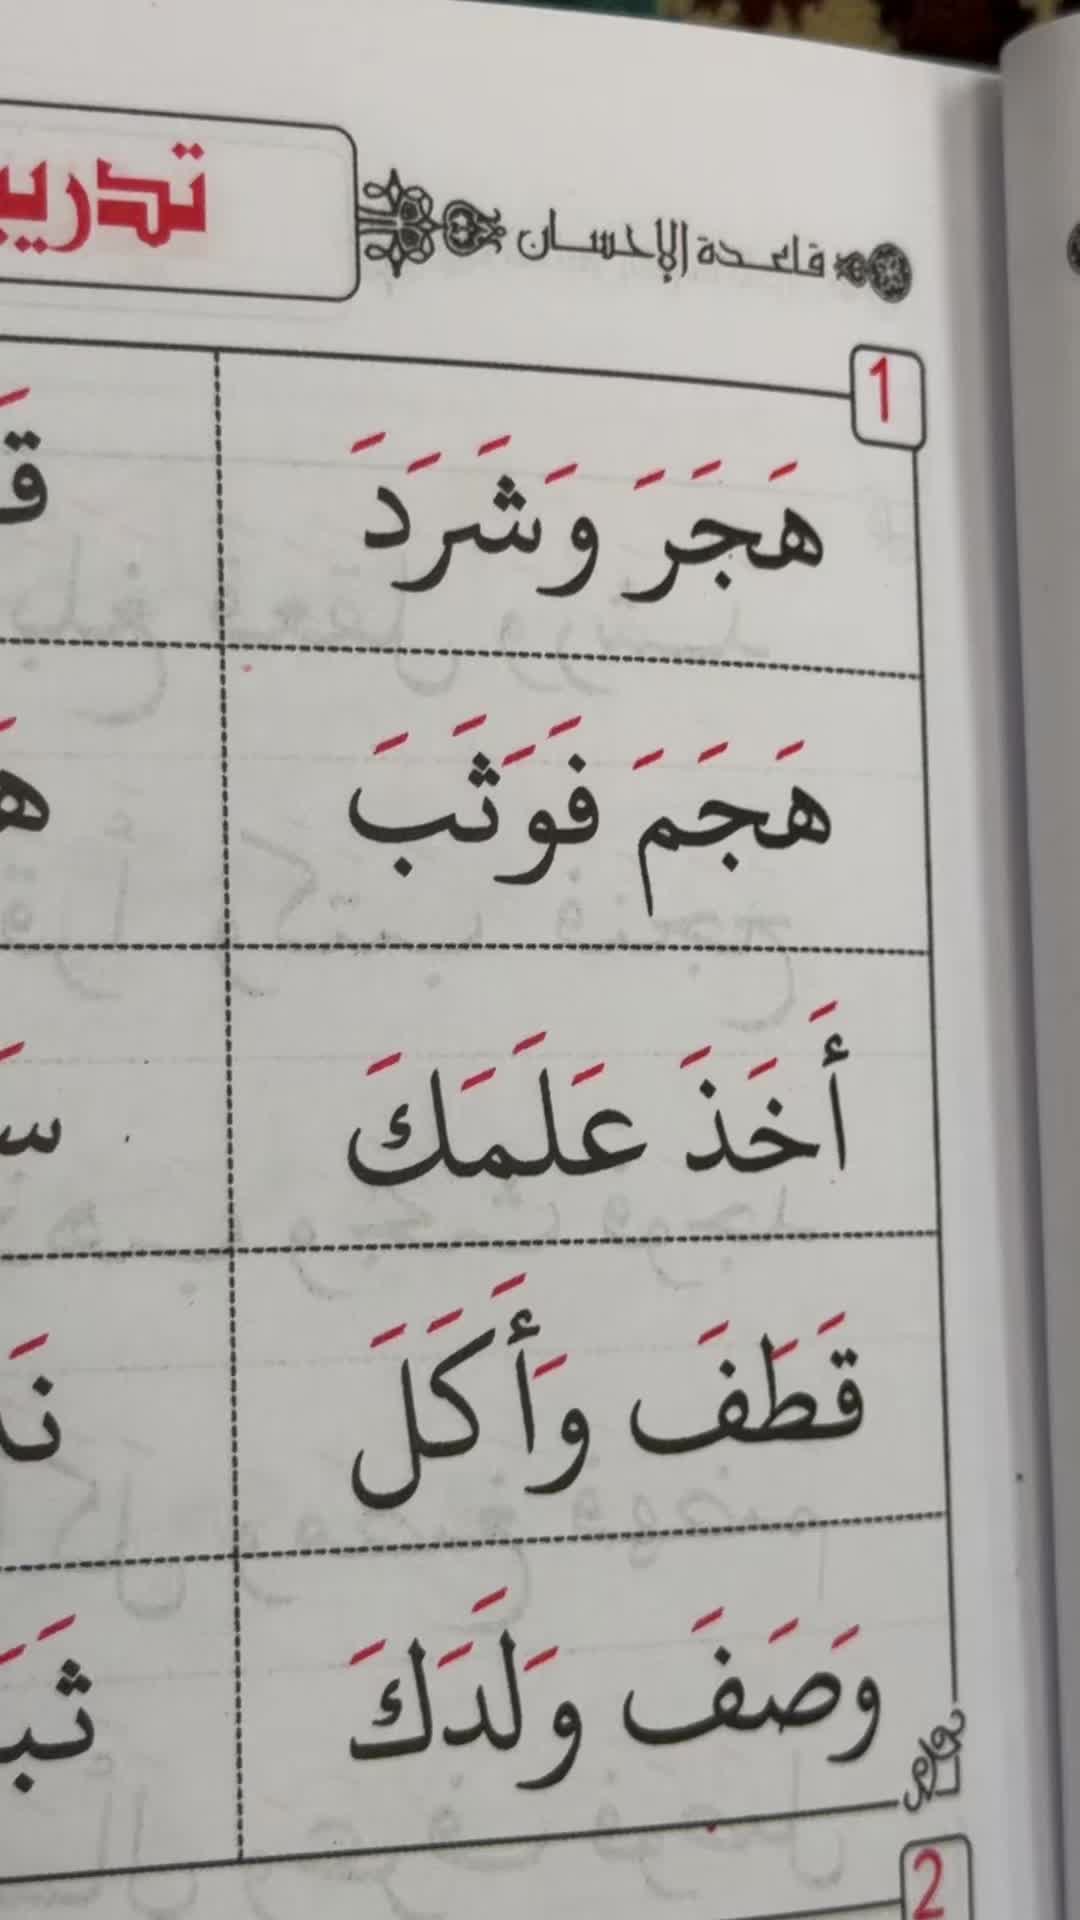 قاعدة الإحسان
1
هَجَرَ وَشَرَدَ
هَجَمَ فَوَثَبَ
أَخَذَ عَلَمَكَ
قَطَفَ وَأَكَلَ
وَصَفَ وَلَدَكَ
2